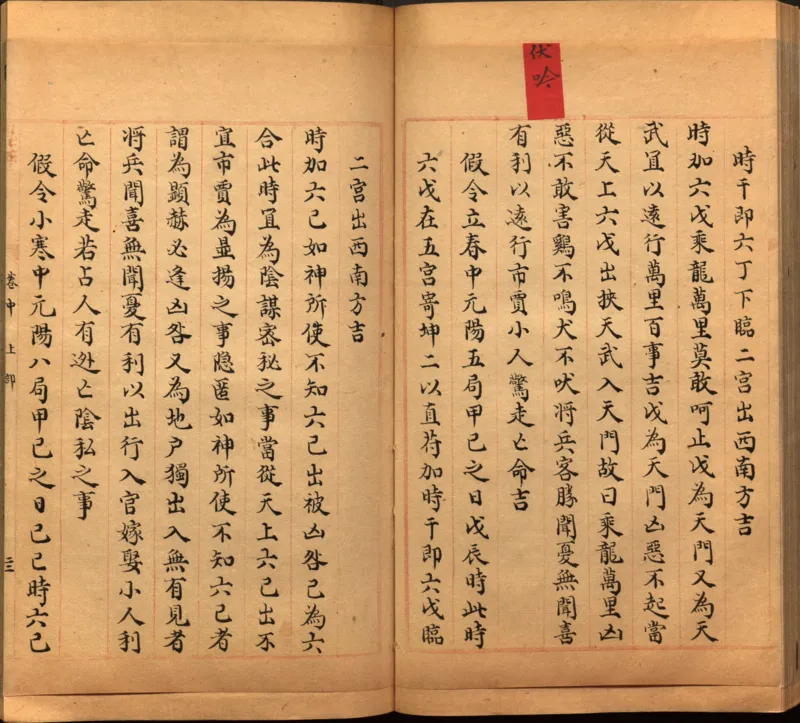 伏吟
時干即六丁下臨二宮出西南方吉
時加六戊乘龍萬里莫敢呵止戊為天門又為天
武宜以遠行萬里百事吉戊為天門凶惡不起當
從天上六戊出挾天武入天門故曰乘龍萬里凶
惡不敢害鷄不鳴犬不吠將兵客勝聞憂無聞喜
有利以遠行市賈小人驚走亡命吉
假令立春中元陽五局甲己之日戊辰時此時
六戊在五宮寄坤二以直符加時干即六戊臨
二宮出西南方吉
時加六己如神所使不知六己出被凶咎己為六
合此時宜為陰謀宻秘之事當從天上六己出不
宜市賈為显揚之事隐匿如神所使不知六己者
謂為顯赫必逢凶咎又為地戶獨出入無有見者
將兵聞喜無聞憂有利以出行入官嫁娶小人利
亡命驚走若占人有逃亡陰私之事
假令小寒中元陽八局甲己之日己巳時六己
卷中 上部
三